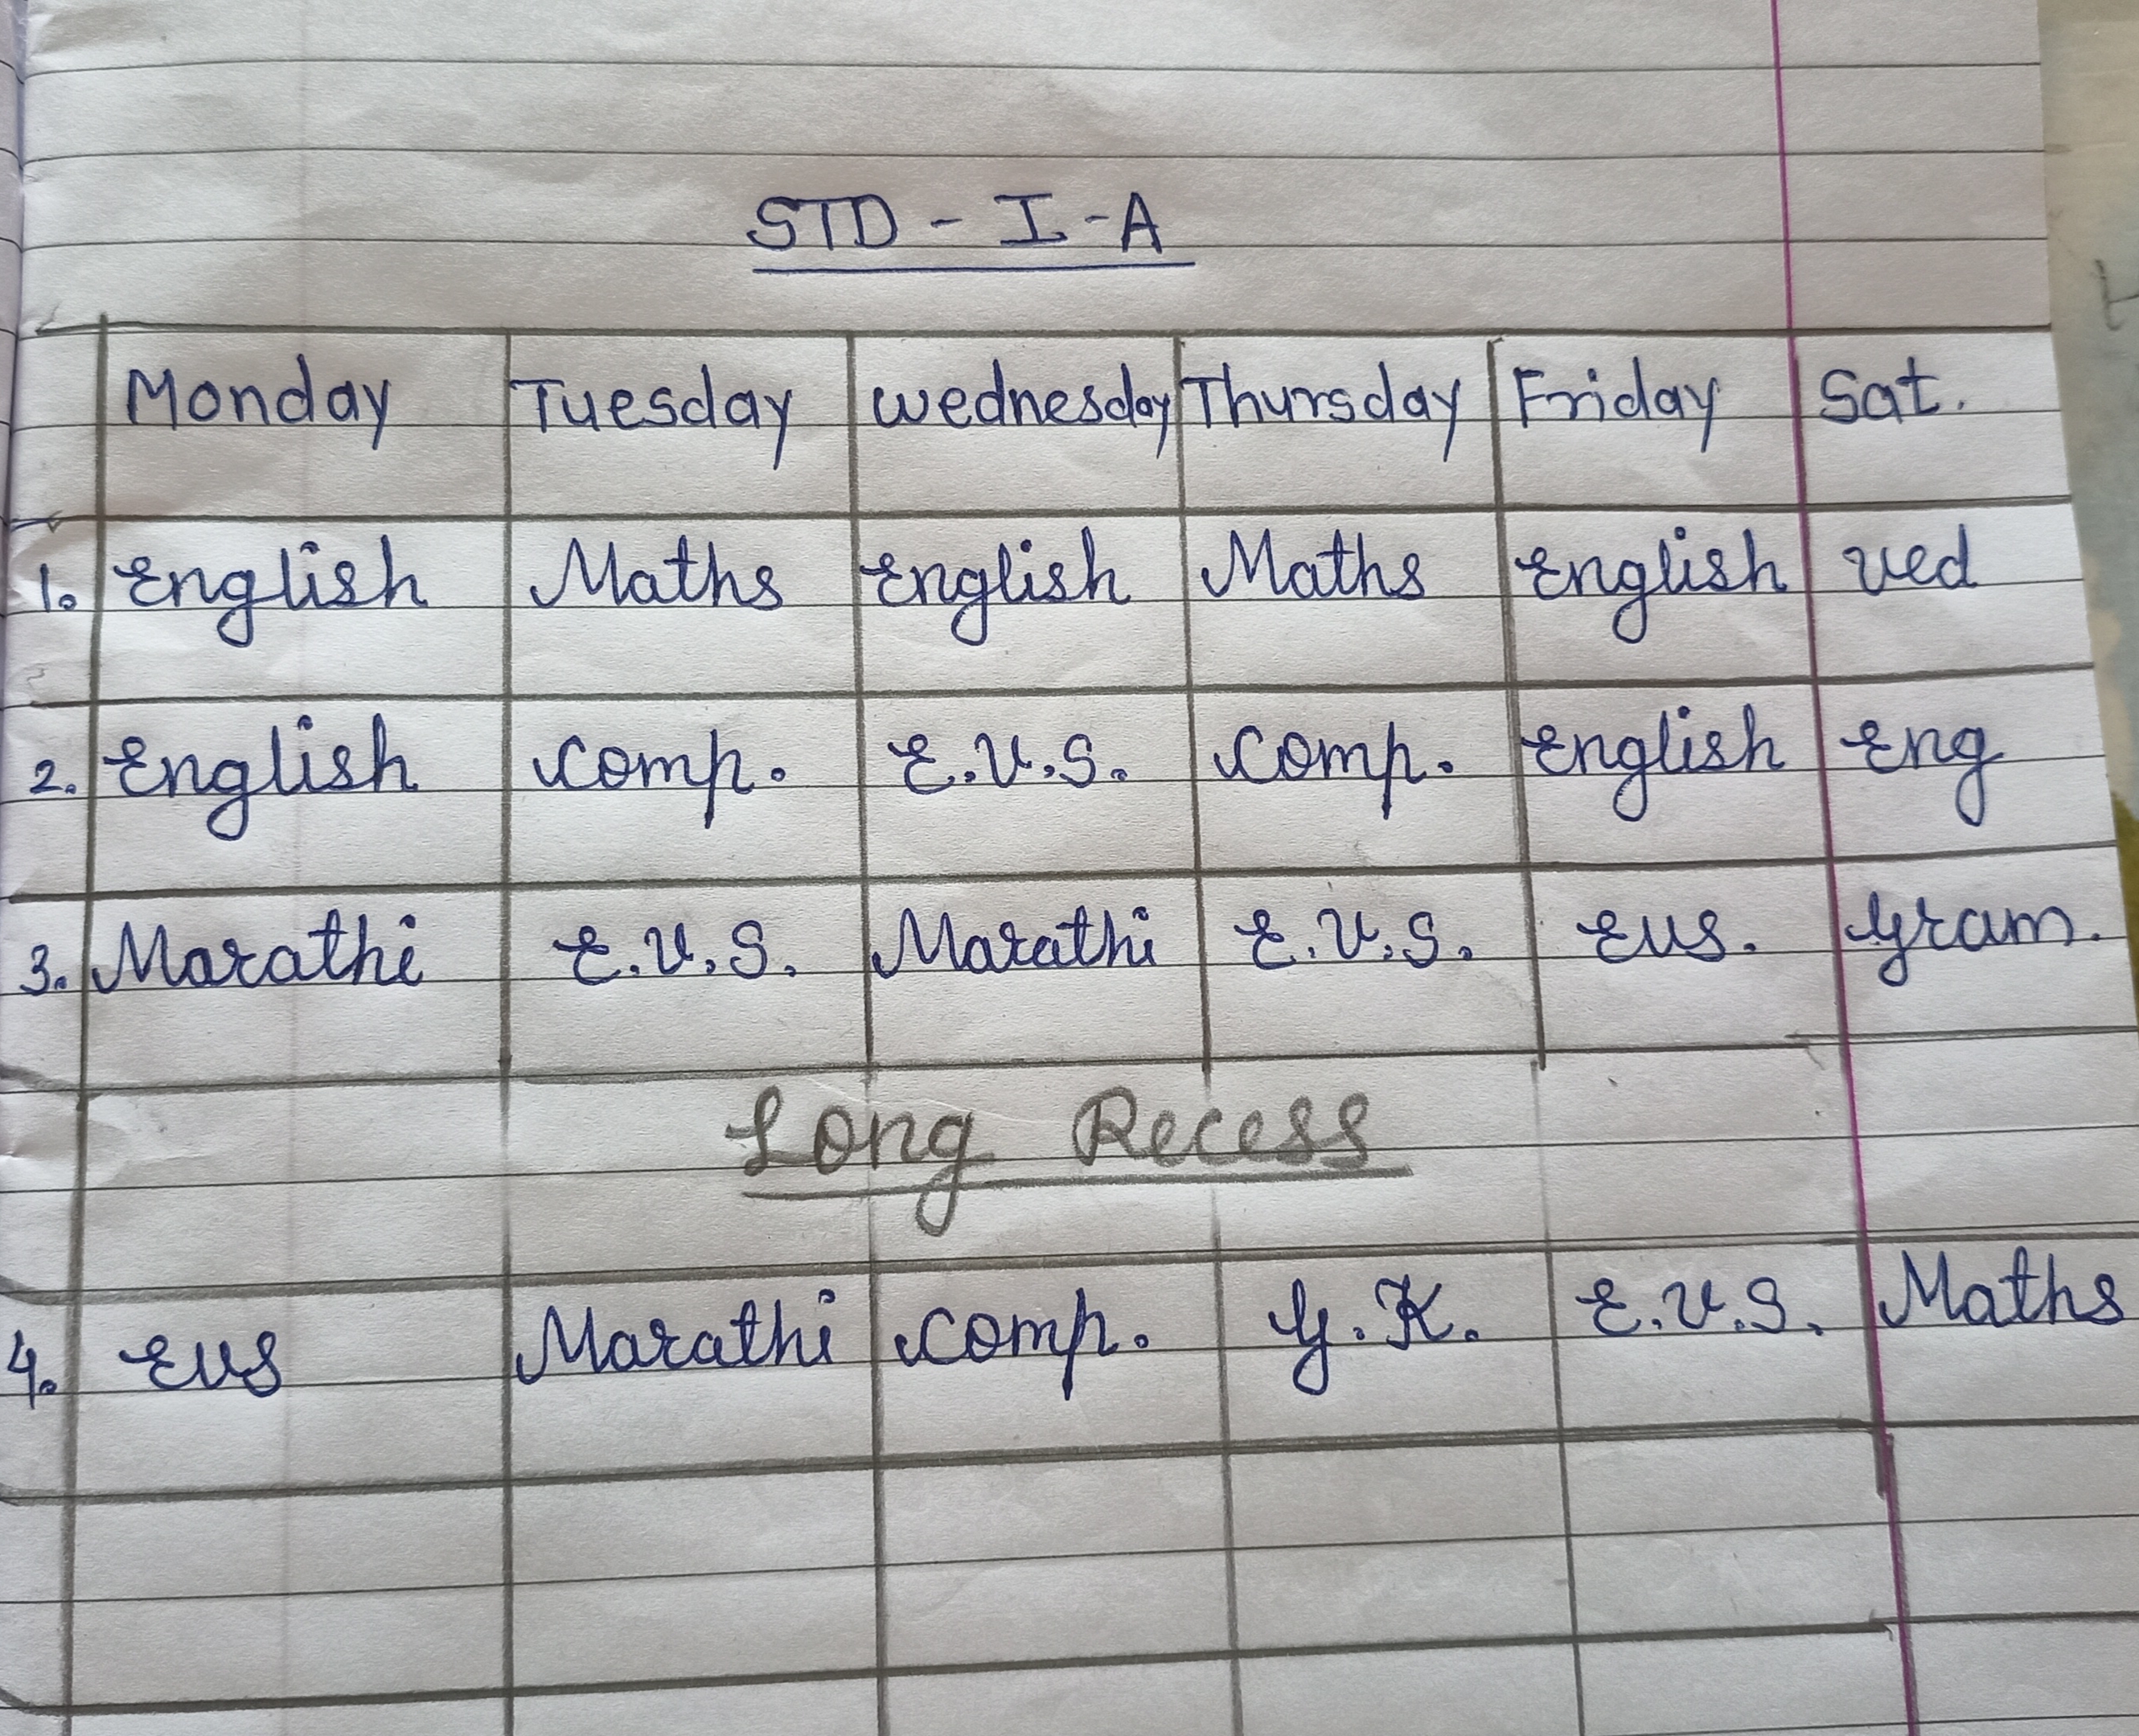 STD - I - A
Monday Tuesday Wednesday Thursday Friday Sat.
1. English Maths English Maths English Ved
2. English Comp. E.V.S. Comp. English Eng
3. Marathi E.V.S. Marathi E.V.S. EVS. Gram.
Long Recess
4. EVS Marathi Comp. G.K. E.V.S. Maths